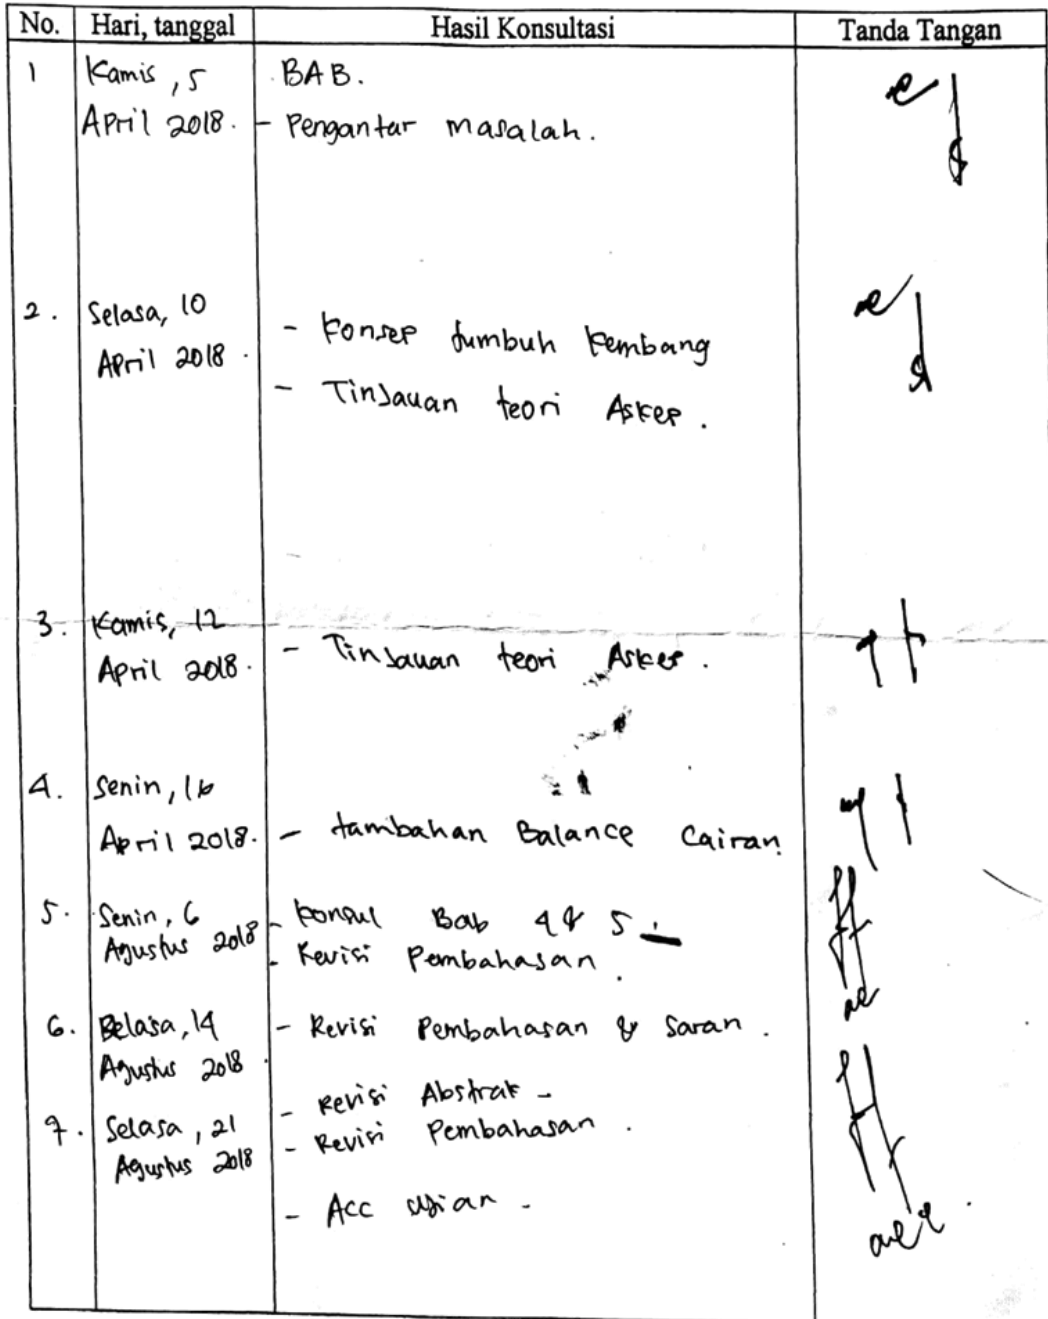 No. Hari, tanggal Hasil Konsultasi Tanda Tangan
1 Kamis, 5 BAB.
April 2018. - Pengantar masalah.
2. Selasa, 10
April 2018.
- Konsep tumbuh kembang
- Tinjauan teori Askep.
3. Kamis, 12
April 2018. - Tinjauan teori Askep.
4. Senin, 16
April 2018. - tambahan Balance Cairan
5. Senin, 6 - Konsul Bab 4 & 5
Agustus 2018 - Revisi Pembahasan.
6. Selasa, 14 - Revisi Pembahasan & Saran.
Agustus 2018
- Revisi Abstrak -
7. Selasa, 21 - Revisi Pembahasan.
Agustus 2018
- Acc ujian -